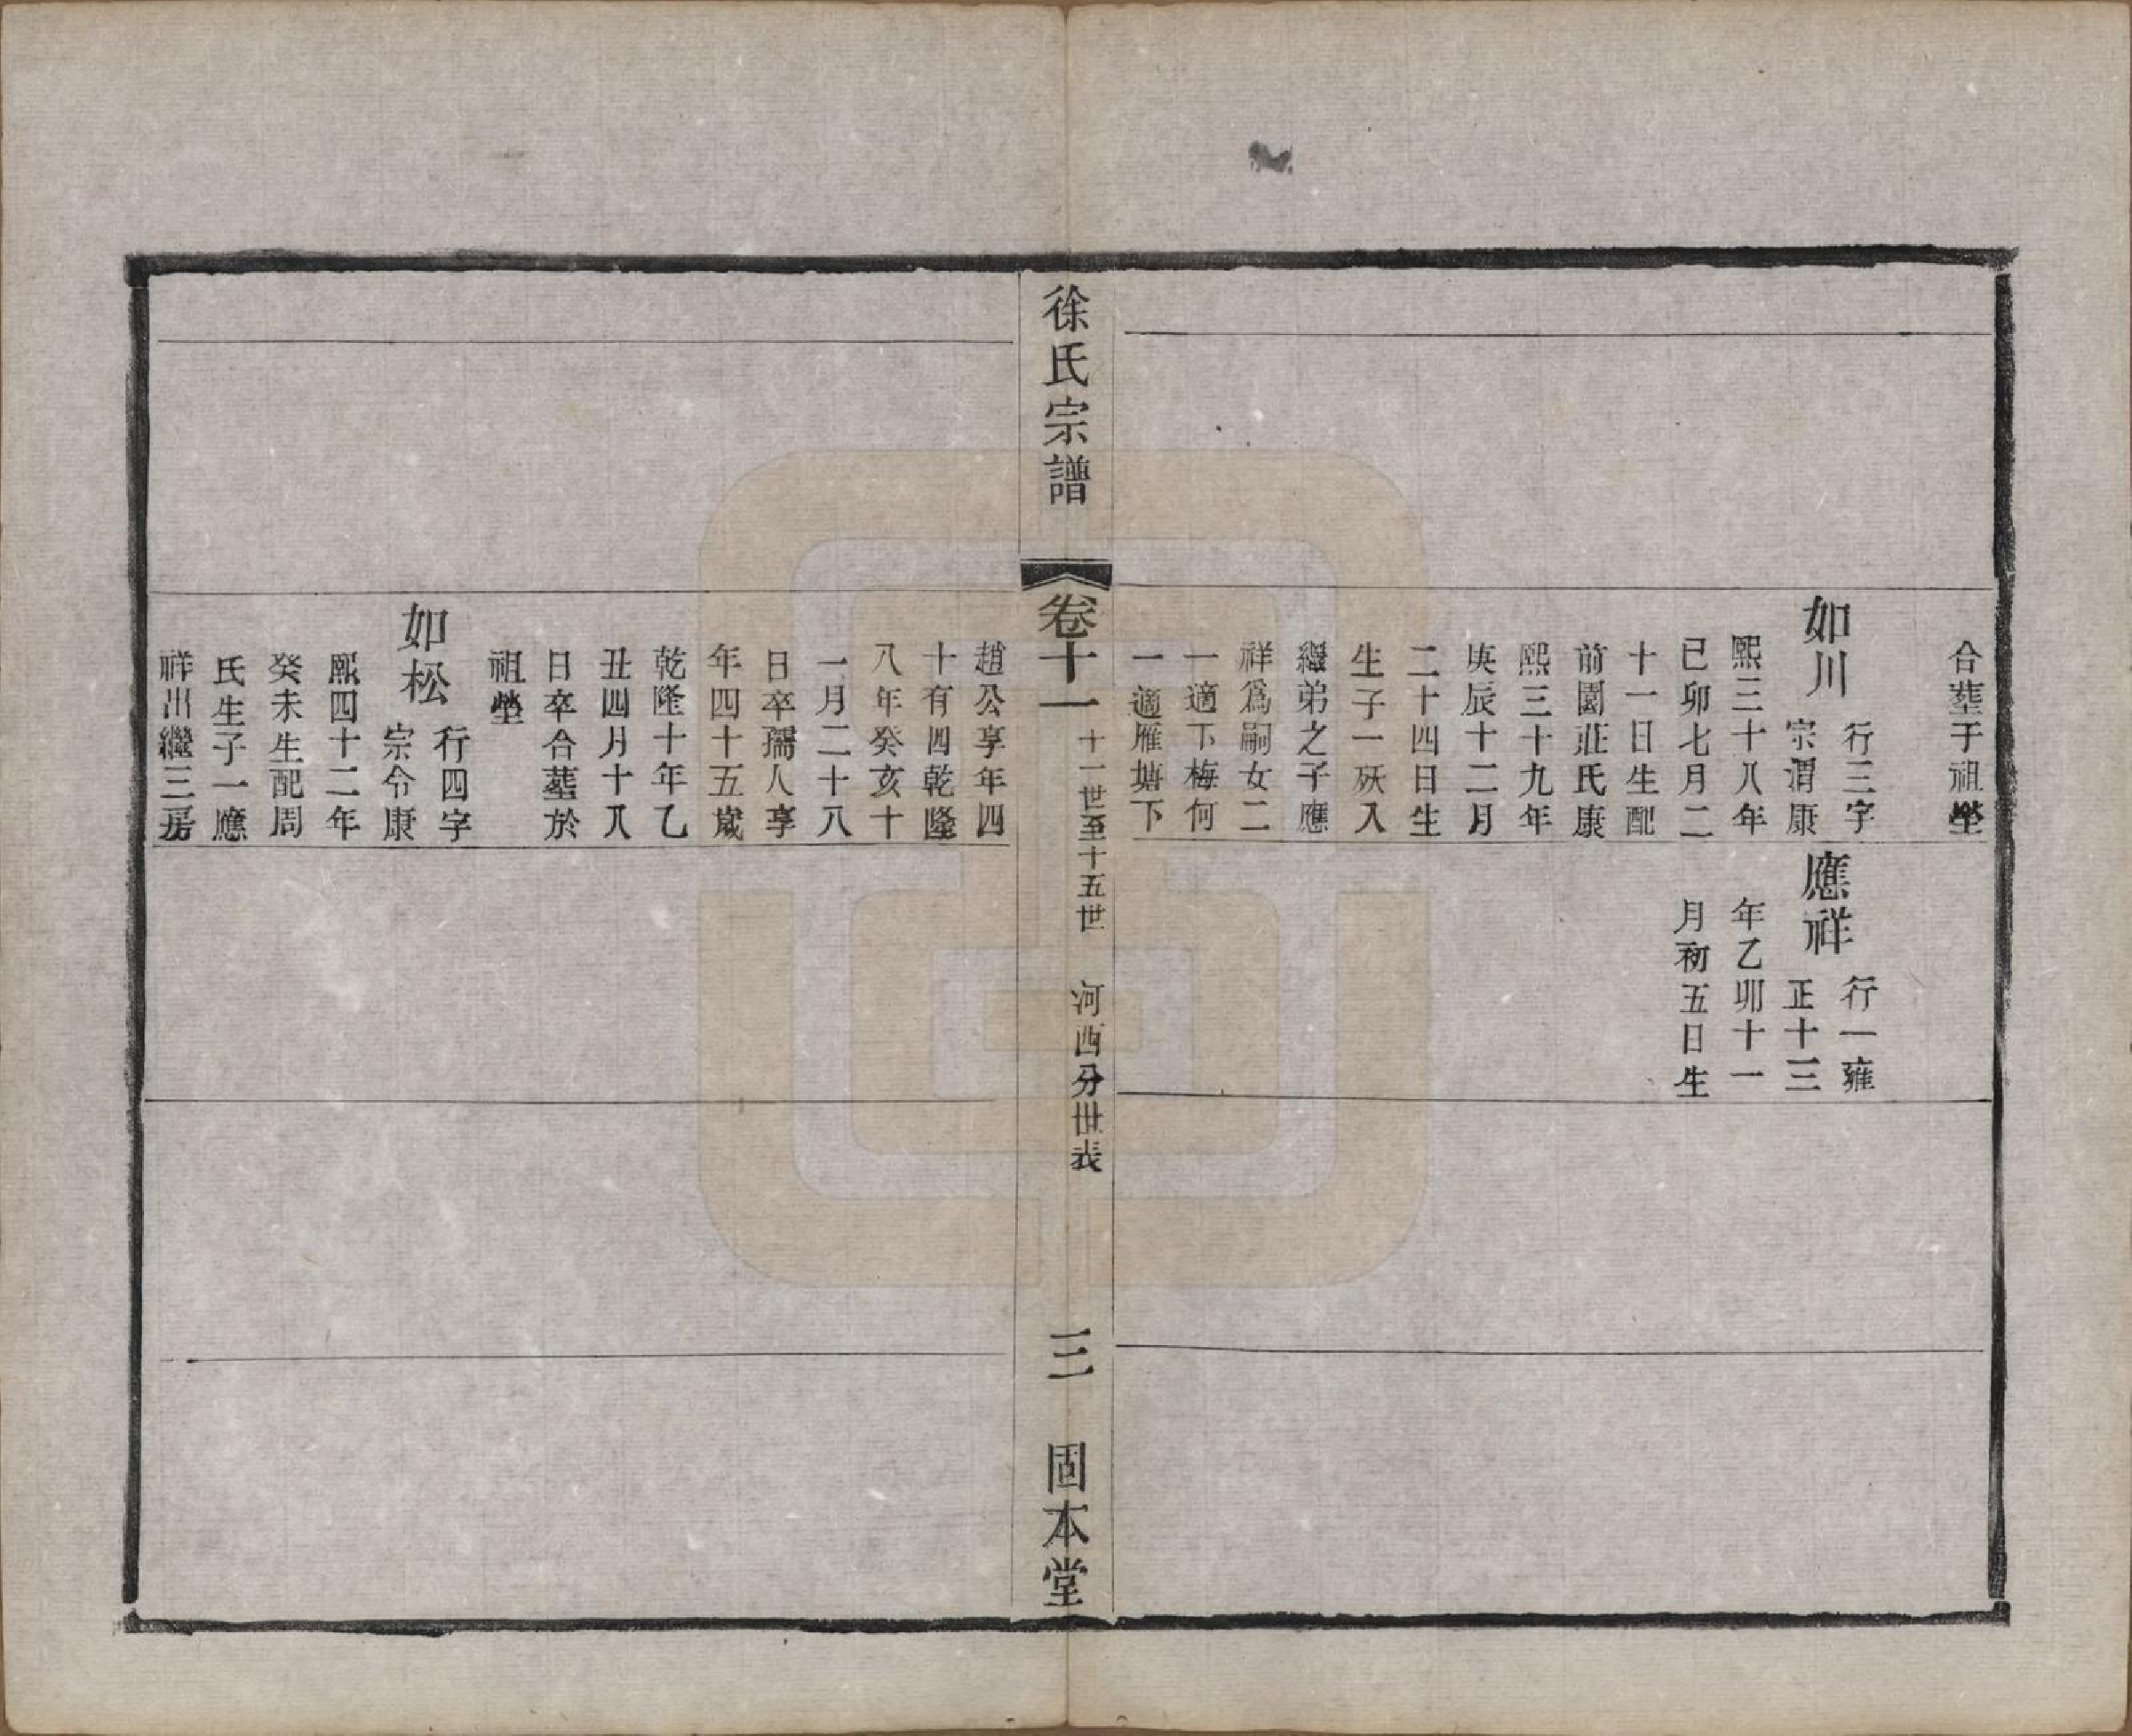 合塟于祖塋
如川
行三字
宗渭康
熙三十八年
已卯七月二
十一日生配
前園莊氏康
熙三十九年
庚辰十二月
二十四日生
生子一殀入
繼弟之子應
祥爲嗣女二
一適下梅何
一適雁塘下
應祥
行一雍
正十三
年乙卯十一
月初五日生
徐氏宗譜
卷十一
十一世至十五世 河西分世表
三
固本堂
趙公享年四
十有四乾隆
八年癸亥十
一月二十八
日卒孺人享
年四十五歲
乾隆十年乙
丑四月十八
日卒合塟於
祖塋
如松
行四字
宗令康
熙四十二年
癸未生配周
氏生子一應
祥出繼三房